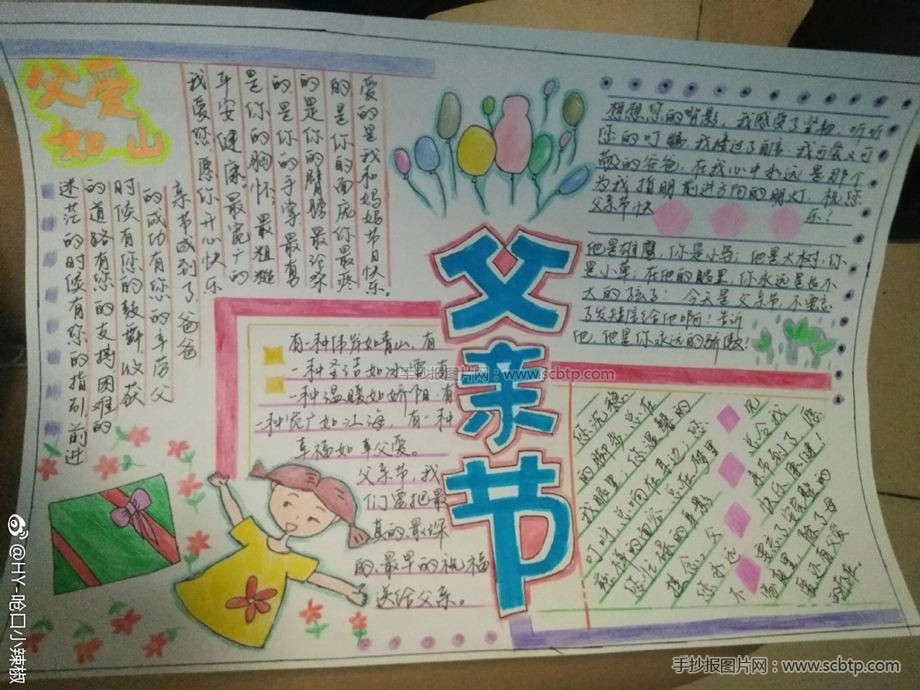 父爱
如山
爱的是我和妈妈节日快乐。
的是你的面庞你最疼
的是你的臂膀最沧桑
的是你的手掌最勇
是你的胸怀最粗糙
平安健康最宽广的
我爱您愿你开心快乐
亲节或到了爸爸
的成功有您的辛劳父
时候有您的鼓舞收获
的道路有您的支撑困难的
迷茫的时候有您的指引前进
父亲节
有一种伟岸如青山,有
一种圣洁如冰雪有
一种温暖如娇阳,有
一种宽广如江海,有一种
幸福如享父爱。
父亲节,我
们要把最
真的最深
的最早的祝福
送给父亲。
想想您的背影,我感受了坚韧,听听
您的叮嘱,我接过了自信,我可爱又可
敬的爸爸,在我心中永远是那个
为我指明前进方向的明灯,祝您
父亲节快乐!
他是雄鹰,你是小鸟;他是大树,你
是小草;在他的眼里,你永远是长不
大的孩子;今天是父亲节,不要忘
了发短信给他啊!告诉
他,他是你永远的骄傲!
您沉稳
的脚步总在
我眼里,你温馨的
叮咛总响在耳边,您
慈祥的面容总在梦里
您忙碌的身影
手抄报图片网:www.scbtp.com
手抄报图片网:www.scbtp.com
@HY-呛口小辣椒